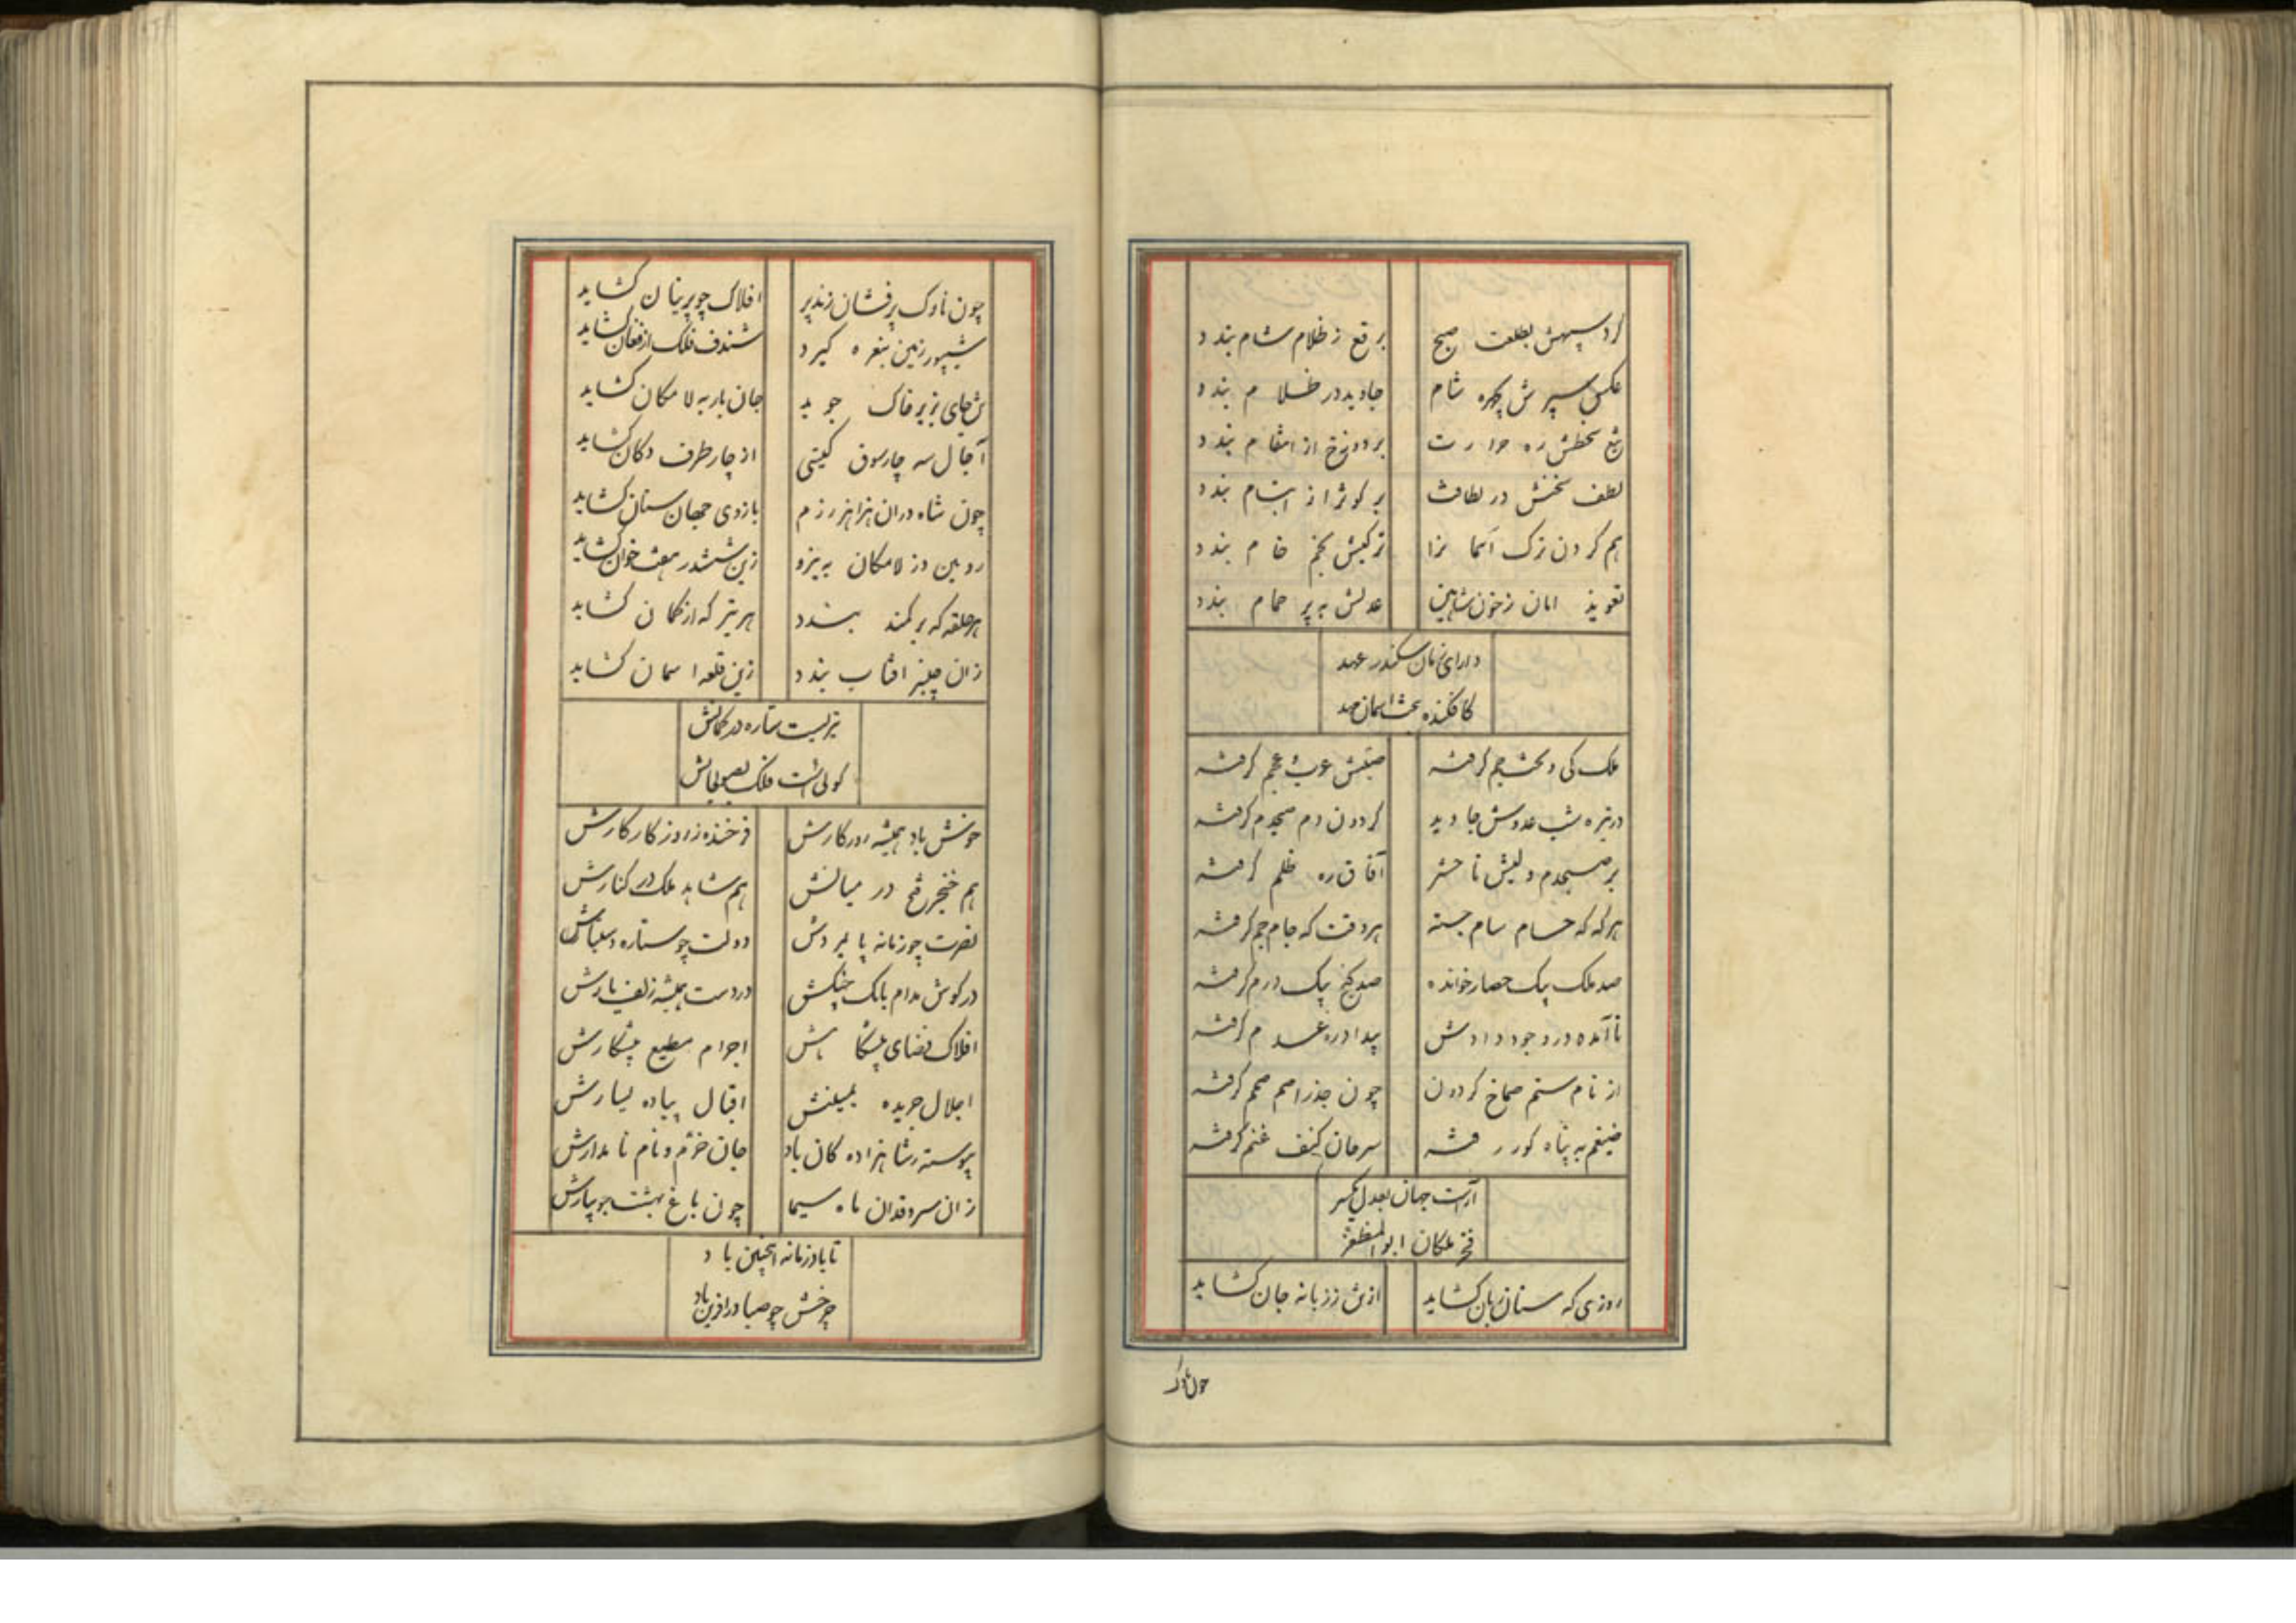 گرد سپهش بطلعت صبح برقع ز ظلام شام بندد
عکس سپرش بچهره شام جاوید در ظلام بندد
تیغ سخطش ره حرارت بر دوزخ از انتقام بندد
لطف سخنش در لطافت بر کوثر از ابتسام بندد
هم گردن ترک آسمانرا ترکیش بخم خام بندد
تعویذ امان ز خون شاهین عدلش به پر حمام بندد
دارای زمان سکندر عهد
کافکنده بتخت آسمان مهد
ملک کی و تخت جم گرفته صیتش عرب و عجم گرفته
در تیره شب عدوش جاوید گردون دم صبحدم گرفته
بر صبحدم ولیش تا حشر آفاق ره ظلم گرفته
هر گه که حسام سام جسته هر وقت که جام جم گرفته
صد ملک بیک حصار خوانده صد گنج بیک درم گرفته
ناآمده در وجود دادش بیداد ره عدم گرفته
از نام ستم صماخ گردون چون جذر اصم صمم گرفته
ضیغم به پناه گور رفته سرحان کنف غنم گرفته
آراست جهان بعدل یکسر
فخر ملکان ابوالمظفر
روزی که سنان زبان گشاید ازتن ززبانه جان گشاید
چون ناوک
چون ناوک پرفشان زند پر افلاک چو پرنیان گشاید
شیپور زمین بنعره گیرد شندف فلک از فغان گشاید
تن جای بزیر خاک جوید جان بار به لامکان گشاید
آجال سه چارسوق گیتی از چار طرف دکان گشاید
چون شاه دران هزاهز رزم بازوی جهان ستان گشاید
رویین دز لامکان به نیزه زین ششدر هفتخوان گشاید
هر حلقه که بر کمند بندد هر تیر که از کمان گشاید
زان چنبر افتاب بندد زین قلعه اسمان گشاید
تیریست ستاره در کمانش
گوئی است فلک بصولجانش
خوش باد همیشه روزگارش فرخنده ز روزگار کارش
هم خنجر فتح در میانش هم شاهد ملک در کنارش
نصرت چو زمانه پایمردش دولت چو ستاره دستیارش
در گوش مدام بانک چنگش در دست همیشه زلف یارش
افلاک فضای پیشگاهش اجرام مطیع پیشکارش
اجلال جریده یمینش اقبال پیاده یسارش
پیوسته ز شاهزاده گان باد جان خرم و نام نامدارش
زان سرو قدان ماه سیما چون باغ بهشت جویبارش
تا باد زمانه اینچنین باد
چرخش چو صبا در آفرین باد